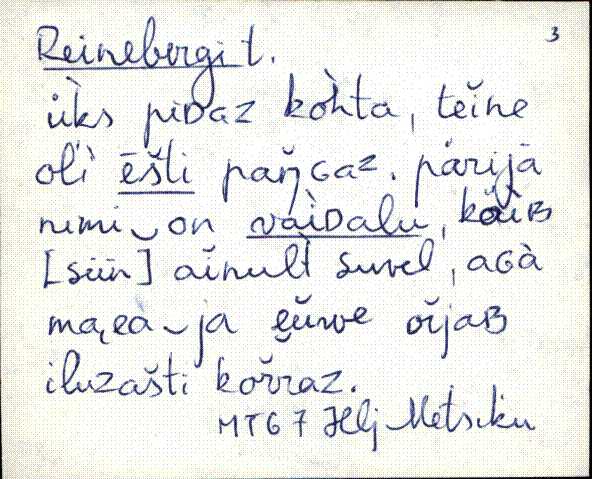 3
Reinebergi t.
ùks piDaz kòhta, teĭne
olì ēšti paŋ̆Gaz. pārijà
nimi‿on vaìDalu, kăìʙ
[siin] aĭnult̀ suvel, aGà
maea‿ja ĕŭwe oĭjaʙ
iluzašti kořraz.
MTG 7 Hlj Metsiku